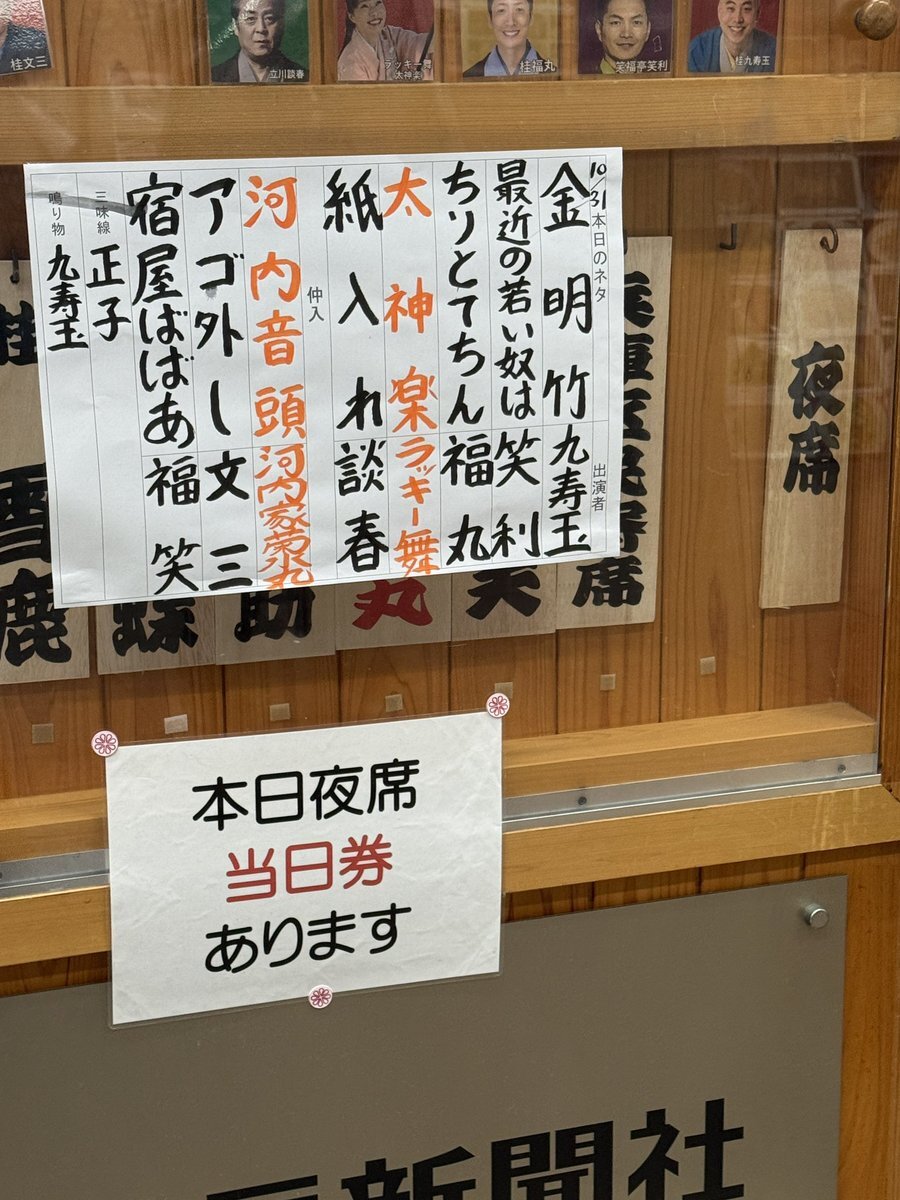 桂文三
立川談春
ラッキー舞
太神楽
桂福丸
笑福亭笑利
桂九寿玉
10/31 本日のネタ 出演者
金明竹 九寿玉
最近の若い奴は 笑利
ちりとてちん 福丸
太神楽 ラッキー舞
紙入れ 談春
仲入
河内音頭 河内家菊水丸
アゴ外し 文三
宿屋ばばあ 福笑
三味線 正子
鳴り物 九寿玉
夜席
席
笑
丸
助
蝶
桂
雪鹿
本日夜席
当日券
あります
新聞社